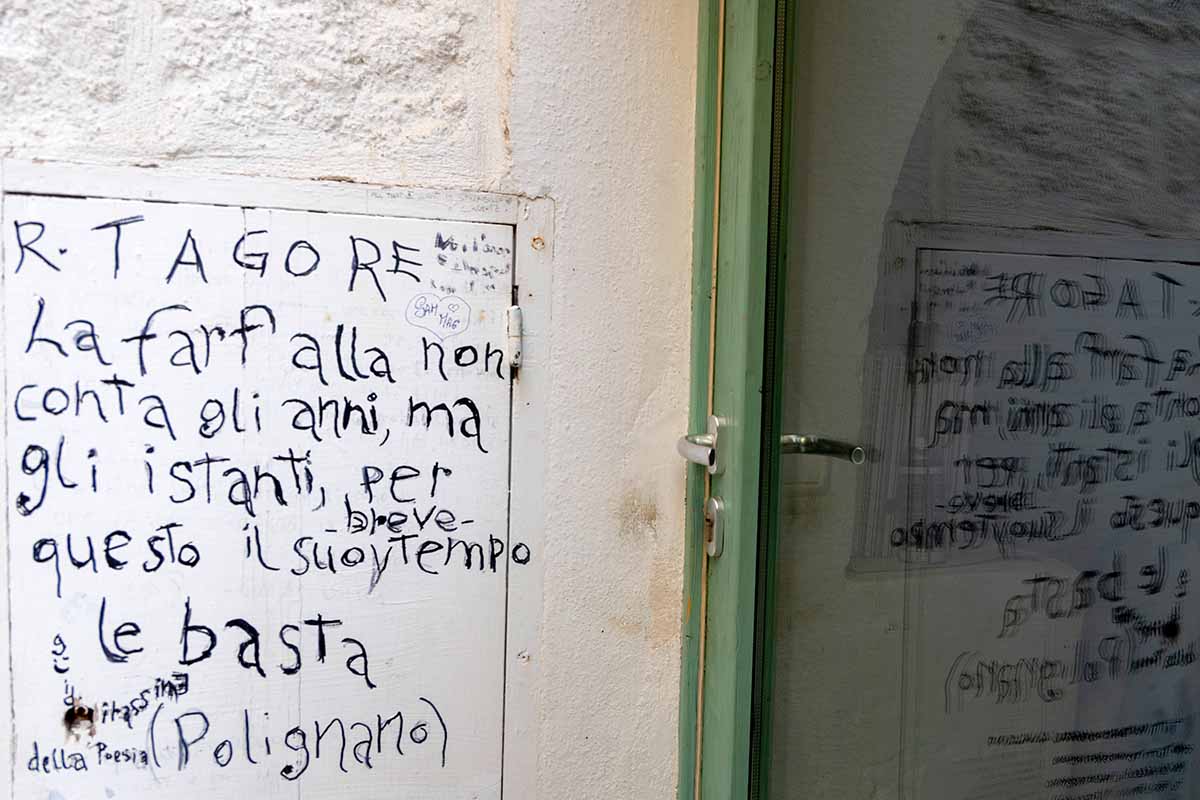 R. TAGORE
SAM
MAG
La farfalla non
conta gli anni, ma
gli istanti, per
-breve-
questo il suo tempo
le basta
della Poesia (Polignano)